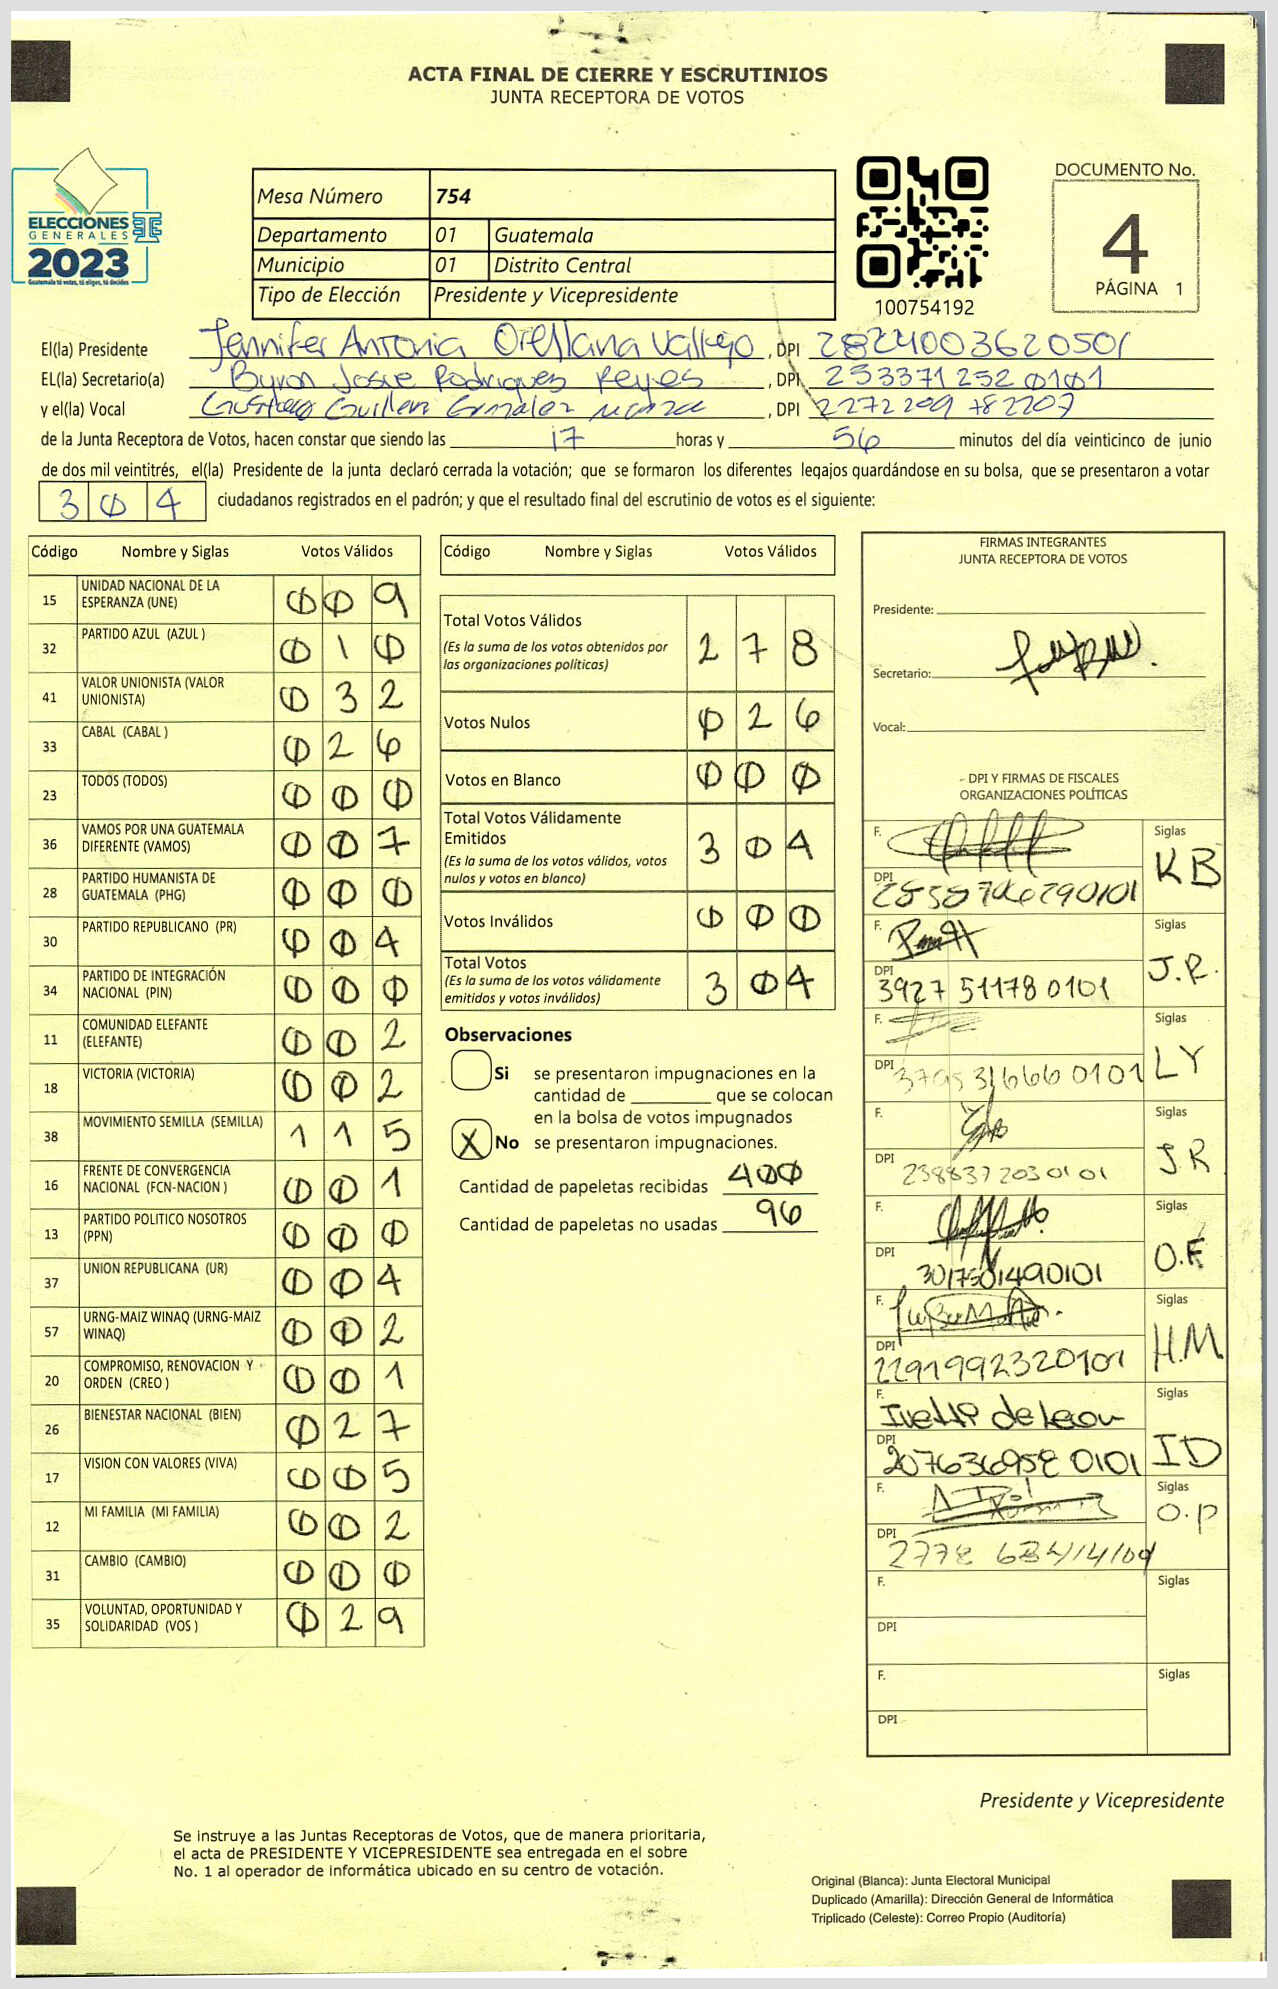 ACTA FINAL DE CIERRE Y ESCRUTINIOS
JUNTA RECEPTORA DE VOTOS
ELECCIONES
GENERALES
2023
Guatemala tú votas, tú eliges, tú decides
Mesa Número 754
Departamento 01 Guatemala
Municipio 01 Distrito Central
Tipo de Elección Presidente y Vicepresidente
100754192
DOCUMENTO No.
4
PÁGINA 1
El(la) Presidente Jennifer Antonia Orellana Vallejo, DPI 2824003620501
EL(la) Secretario(a) Byron Josue Rodriguez Reyes, DPI 2533712520101
y el(la) Vocal Gustavo Guillermo González, DPI
de la Junta Receptora de Votos, hacen constar que siendo las 17 horas y 56 minutos del día veinticinco de junio
de dos mil veintitrés, el(la) Presidente de la junta declaró cerrada la votación; que se formaron los diferentes legajos quardándose en su bolsa, que se presentaron a votar
304 ciudadanos registrados en el padrón; y que el resultado final del escrutinio de votos es el siguiente:
Código Nombre y Siglas Votos Válidos
15 UNIDAD NACIONAL DE LA ESPERANZA (UNE) 009
32 PARTIDO AZUL (AZUL ) 010
41 VALOR UNIONISTA (VALOR UNIONISTA) 032
33 CABAL (CABAL ) 026
23 TODOS (TODOS) 000
36 VAMOS POR UNA GUATEMALA DIFERENTE (VAMOS) 007
28 PARTIDO HUMANISTA DE GUATEMALA (PHG) 000
30 PARTIDO REPUBLICANO (PR) 004
34 PARTIDO DE INTEGRACIÓN NACIONAL (PIN) 000
11 COMUNIDAD ELEFANTE (ELEFANTE) 002
18 VICTORIA (VICTORIA) 002
38 MOVIMIENTO SEMILLA (SEMILLA) 115
16 FRENTE DE CONVERGENCIA NACIONAL (FCN-NACION ) 001
13 PARTIDO POLITICO NOSOTROS (PPN) 000
37 UNION REPUBLICANA (UR) 004
57 URNG-MAIZ WINAQ (URNG-MAIZ WINAQ) 002
20 COMPROMISO, RENOVACION Y ORDEN (CREO ) 001
26 BIENESTAR NACIONAL (BIEN) 027
17 VISION CON VALORES (VIVA) 005
12 MI FAMILIA (MI FAMILIA) 002
31 CAMBIO (CAMBIO) 000
35 VOLUNTAD, OPORTUNIDAD Y SOLIDARIDAD (VOS ) 029
Código Nombre y Siglas Votos Válidos
Total Votos Válidos 278
(Es la suma de los votos obtenidos por
las organizaciones políticas)
Votos Nulos 026
Votos en Blanco 000
Total Votos Válidamente
Emitidos 304
(Es la suma de los votos válidos, votos
nulos y votos en blanco)
Votos Inválidos 000
Total Votos 304
(Es la suma de los votos válidamente
emitidos y votos inválidos)
Observaciones
Si se presentaron impugnaciones en la
cantidad de ________ que se colocan
en la bolsa de votos impugnados
X No se presentaron impugnaciones.
Cantidad de papeletas recibidas 400
Cantidad de papeletas no usadas 96
FIRMAS INTEGRANTES
JUNTA RECEPTORA DE VOTOS
Presidente:
Secretario:
Vocal:
DPI Y FIRMAS DE FISCALES
ORGANIZACIONES POLÍTICAS
F. Siglas KB
DPI
F. Siglas J.R.
DPI 3927 51178 0101
F. Siglas LY
DPI
F. Siglas J.R
DPI 2388372030101
F. Siglas O.F
DPI 3017501490101
F. Siglas H.M
DPI 2291992320101
F. Ivette de Leon Siglas ID
DPI
F. Siglas O.P
DPI
F. Siglas
DPI
F. Siglas
DPI
Presidente y Vicepresidente
Se instruye a las Juntas Receptoras de Votos, que de manera prioritaria,
el acta de PRESIDENTE Y VICEPRESIDENTE sea entregada en el sobre
No. 1 al operador de informática ubicado en su centro de votación.
Original (Blanca): Junta Electoral Municipal
Duplicado (Amarilla): Dirección General de Informática
Triplicado (Celeste): Correo Propio (Auditoría)